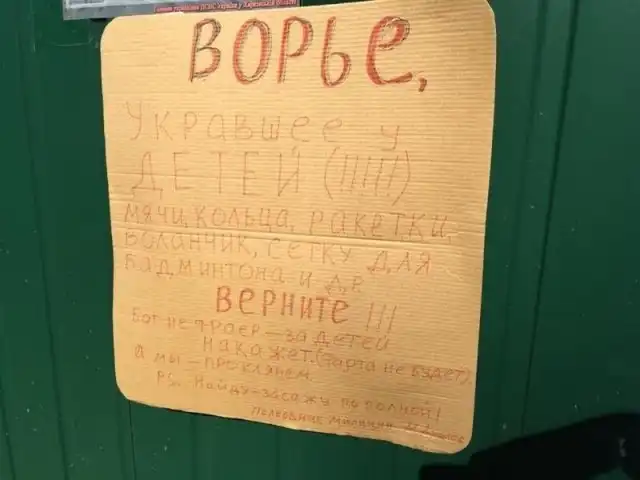 ВОРЬЕ,
УКРАВШЕЕ У
ДЕТЕЙ (!!!!!)
МЯЧИ, КОЛЬЦА, РАКЕТКИ,
ВОЛАНЧИК, СЕТКУ ДЛЯ
БАДМИНТОНА И ДР.
ВЕРНИТЕ !!!
БОГ НЕ ФРАЕР – ЗА ДЕТЕЙ
НАКАЖЕТ. (ФАРТА НЕ БУДЕТ).
А МЫ – ПРОКЛЯНЕМ
PS. НАЙДУ – ЗАСАЖУ ПО ПОЛНОЙ!
ПОЛКОВНИК МИЛИЦИИ